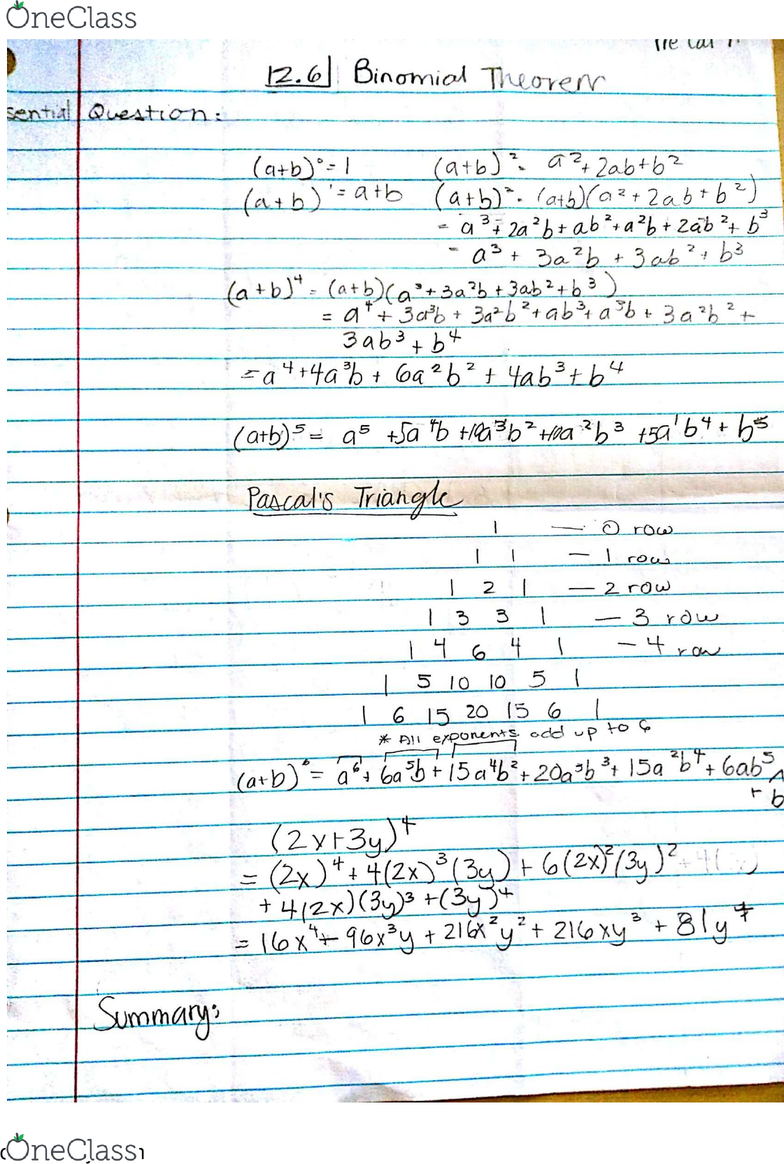 OneClass
12.6 Binomial Theorem
sential Question:
(a+b)⁰ = 1 (a+b)² = a² + 2ab + b²
(a+b)' = a+b (a+b)² = (a+b)(a² + 2ab + b²)
= a³ + 2a²b + ab² + a²b + 2ab² + b³
= a³ + 3a²b + 3ab² + b³
(a+b)⁴ = (a+b)(a³ + 3a²b + 3ab² + b³)
= a⁴ + 3a³b + 3a²b² + ab³ + a³b + 3a²b² +
3ab³ + b⁴
= a⁴ + 4a³b + 6a²b² + 4ab³ + b⁴
(a+b)⁵ = a⁵ + 5a⁴b + 10a³b² + 10a²b³ + 5a¹b⁴ + b⁵
Pascal's Triangle
1 — 0 row
1 1 — 1 row
1 2 1 — 2 row
1 3 3 1 — 3 row
1 4 6 4 1 — 4 row
1 5 10 10 5 1
1 6 15 20 15 6 1
* All exponents add up to 6
(a+b)⁶ = a⁶ + 6a⁵b + 15a⁴b² + 20a³b³ + 15a²b⁴ + 6ab⁵
+ b
(2x+3y)⁴
= (2x)⁴ + 4(2x)³(3y) + 6(2x)²(3y)²
+ 4(2x)(3y)³ + (3y)⁴
= 16x⁴ + 96x³y + 216x²y² + 216xy³ + 81y⁴
Summary:
OneClass